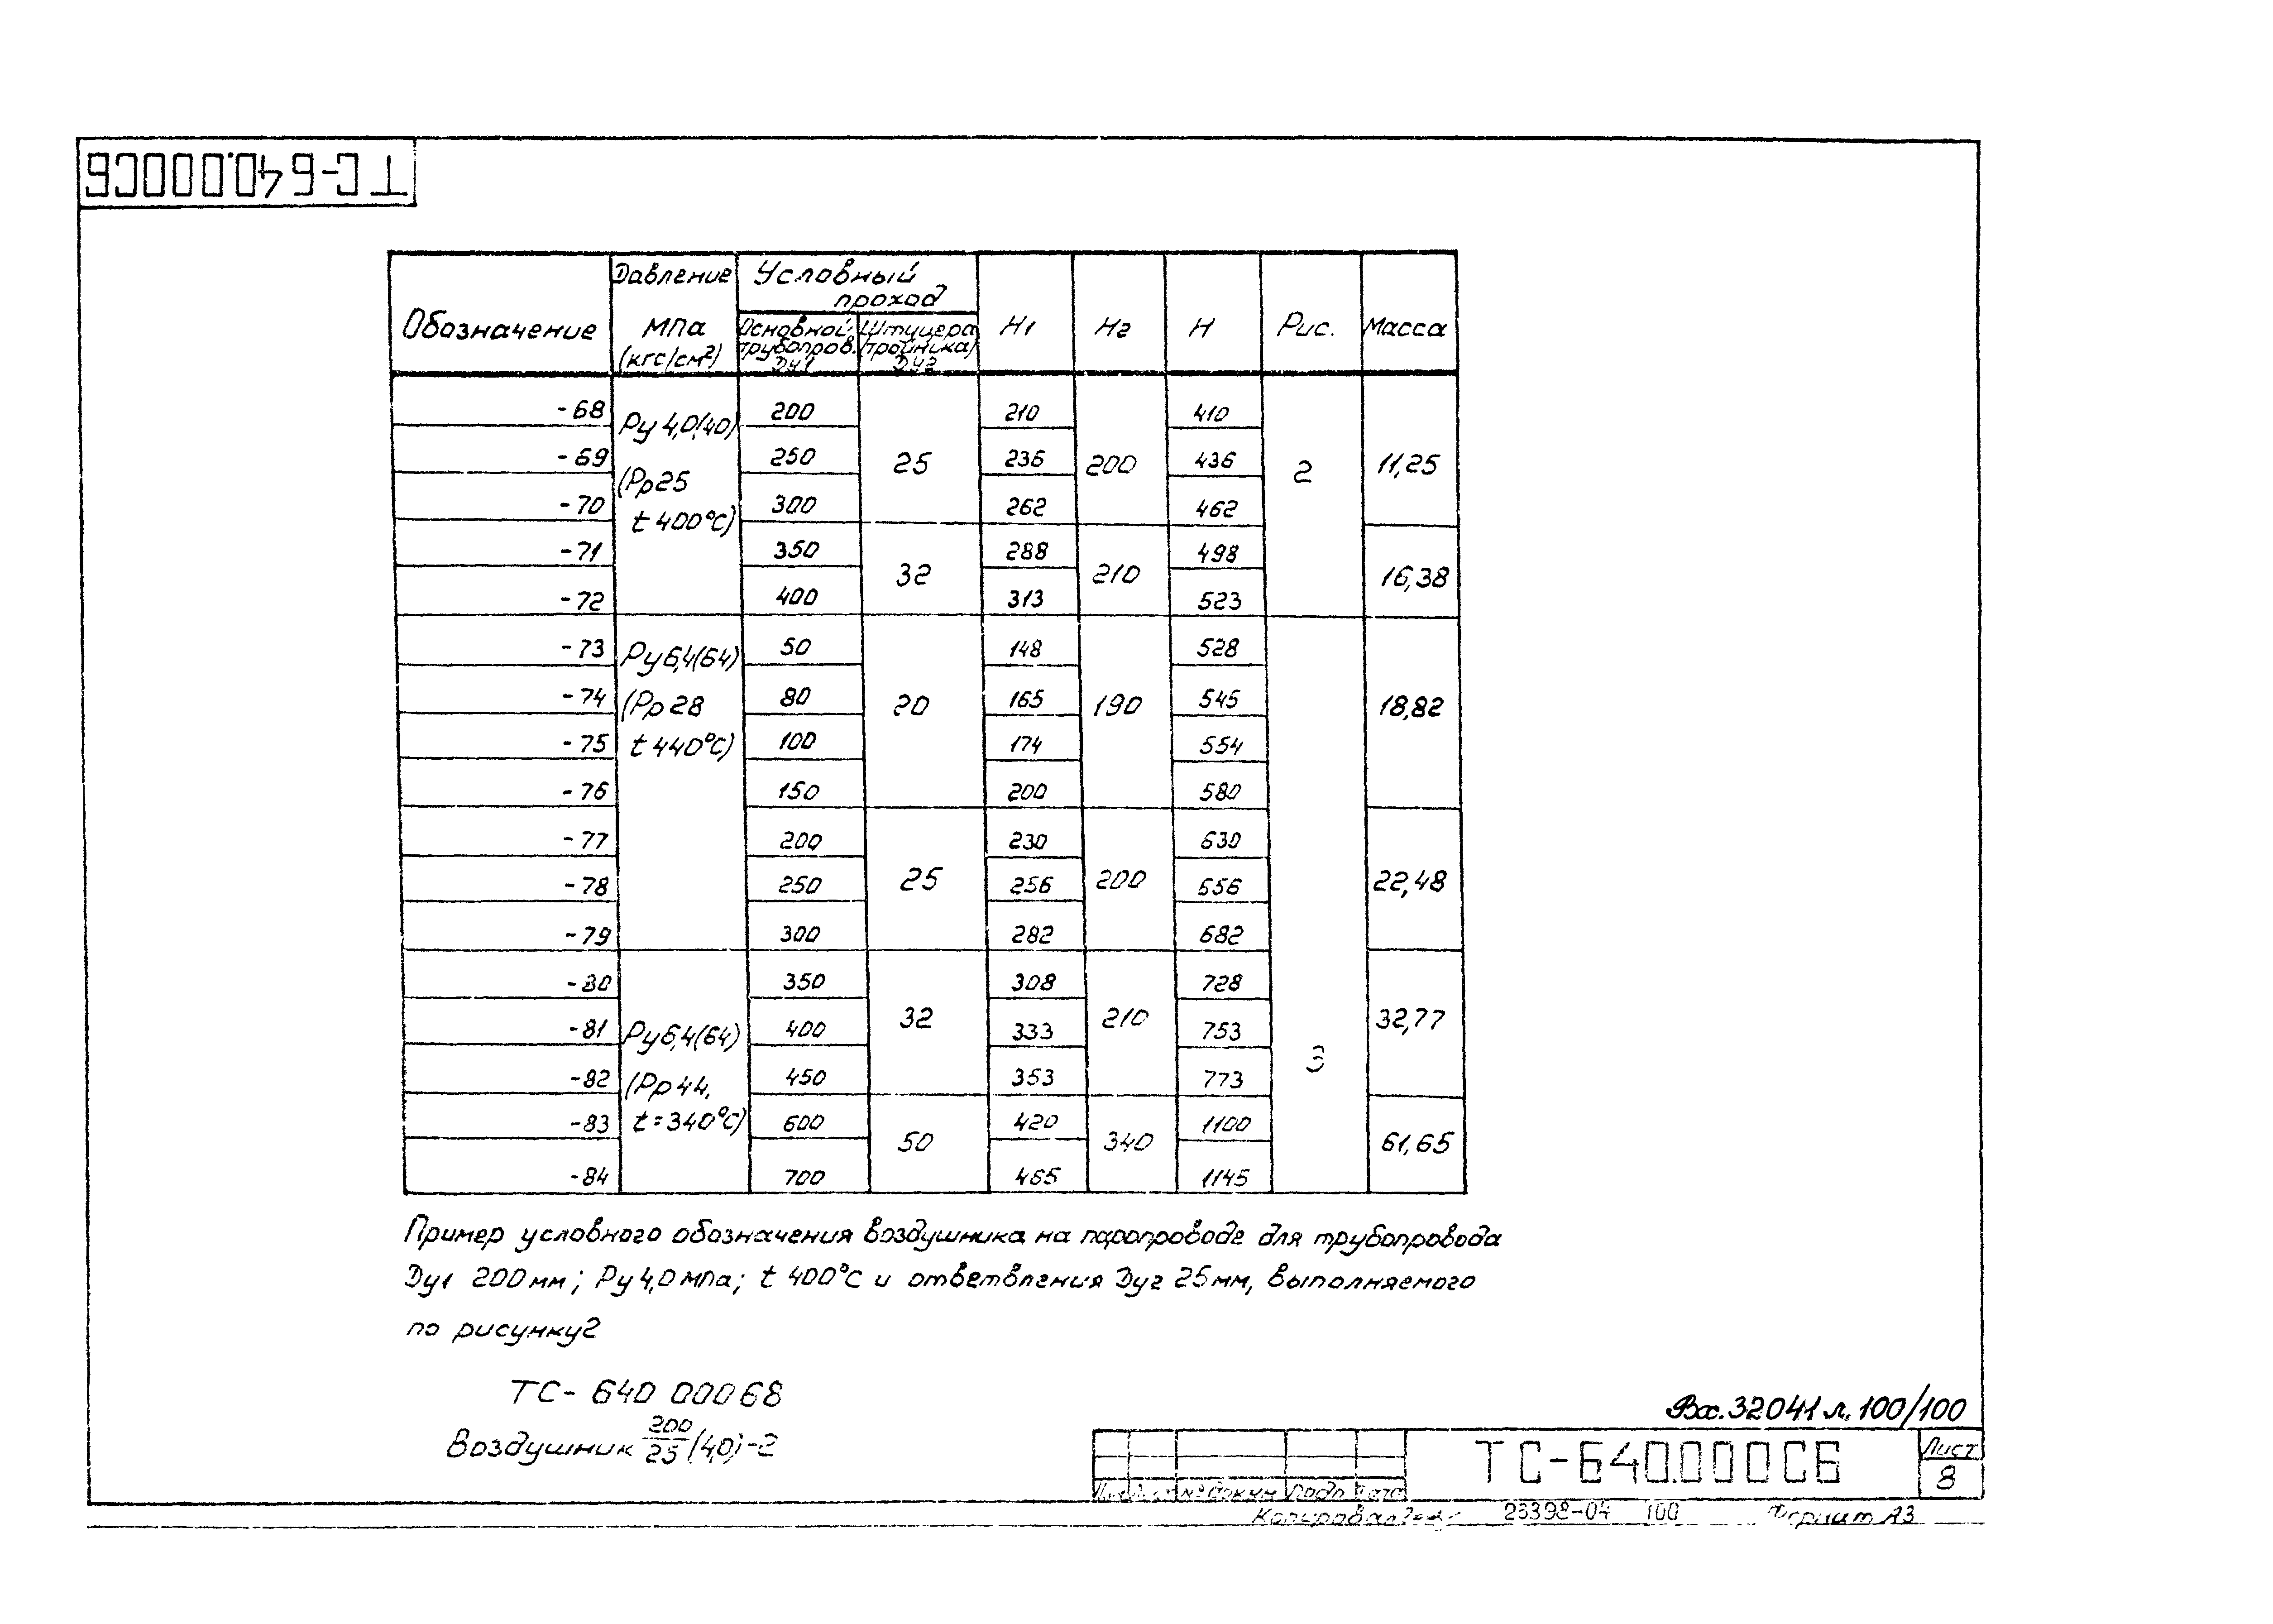 ТС-640.000СБ
Обозначение | Давление МПа (кгс/см²) | Условный проход | Н1 | Н2 | Н | Рис. | Масса
Основной трубопров. Ду1 | Штуцера (тройника) Ду2
-68 | Ру 4,0(40) | 200 | 25 | 210 | 200 | 410 | 2 | 11,25
-69 | (Рр25 | 250 | 236 | 436
-70 | t 400°С) | 300 | 262 | 462
-71 | 350 | 32 | 288 | 210 | 498 | 16,38
-72 | 400 | 313 | 523
-73 | Ру6,4(64) | 50 | 20 | 148 | 190 | 528 | 3 | 18,82
-74 | (Рр 28 | 80 | 165 | 545
-75 | t 440°С) | 100 | 174 | 554
-76 | 150 | 200 | 580
-77 | 200 | 25 | 230 | 200 | 630 | 22,48
-78 | 250 | 256 | 656
-79 | 300 | 282 | 682
-80 | 350 | 32 | 308 | 210 | 728 | 32,77
-81 | Ру6,4(64) | 400 | 333 | 753
-82 | (Рр 44, | 450 | 353 | 773
-83 | t=340°С) | 600 | 50 | 420 | 340 | 1100 | 61,65
-84 | 700 | 465 | 1145
Пример условного обозначения воздушника на паропроводе для трубопровода
Ду1 200мм; Ру 4,0мпа; t 400°С и ответвления Ду2 25мм, выполняемого
по рисунку2
ТС- 640 000 68
Воздушник 200/25 (4,0)-2
Вх. 32041 л. 100/100
ТС-640.000СБ
Лист
8
№ докум Подп Дата
Копировал
23398-04 100
Формат А3